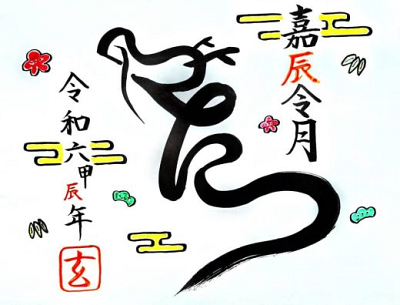 嘉辰令月
令和六甲辰年
玄